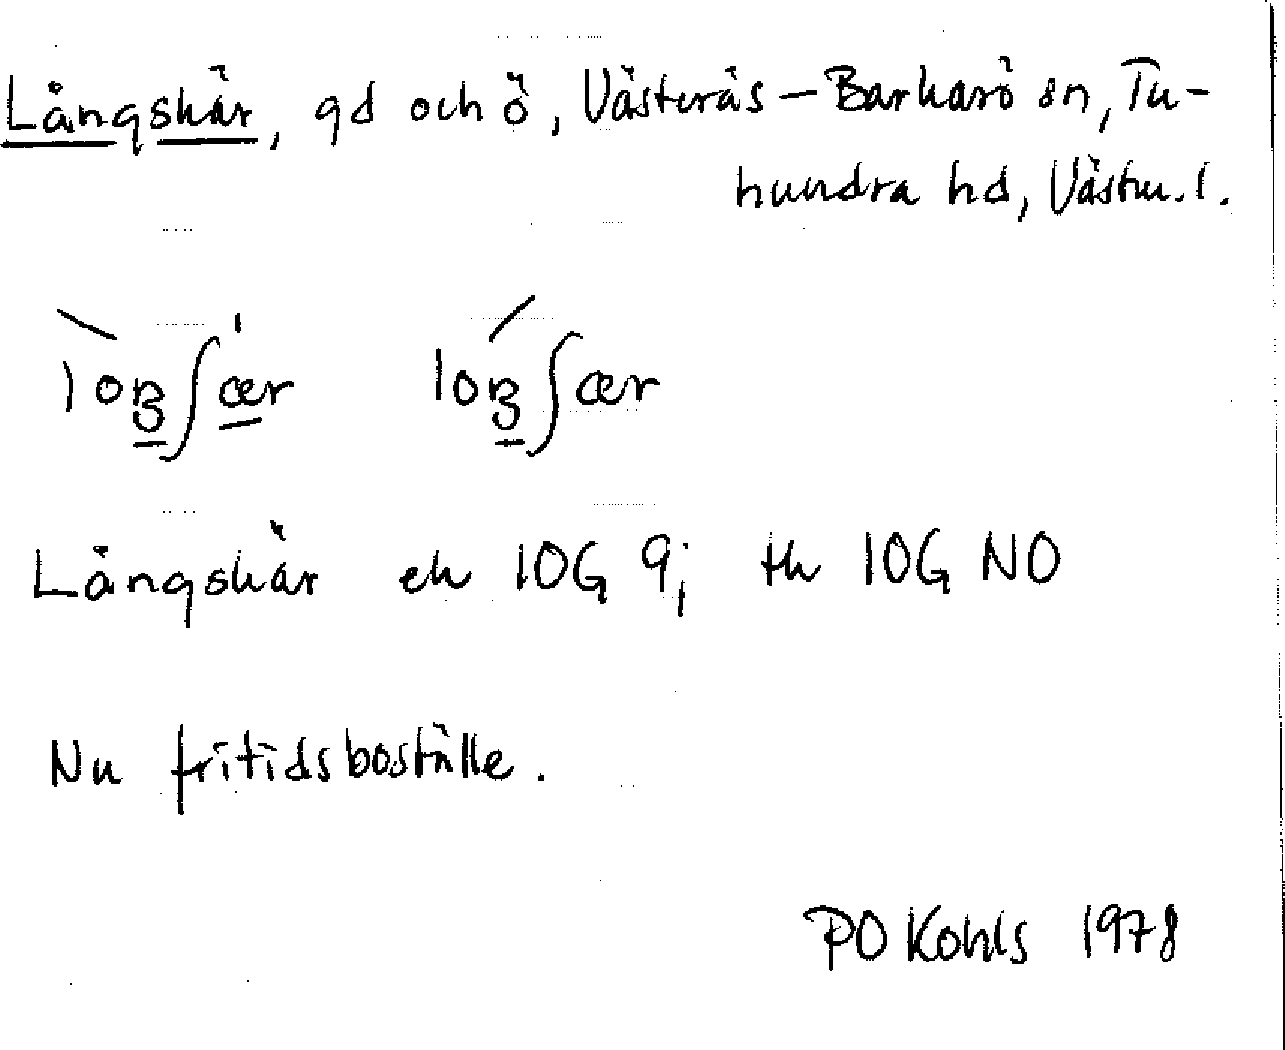 Långskär, gd och ö, Västerås-Barkarö sn, Tu-
hundra hd, Västm. l.
Långskär ek 10G 9; tk 10G NO
Nu fritidsboställe.
PO Kohls 1978